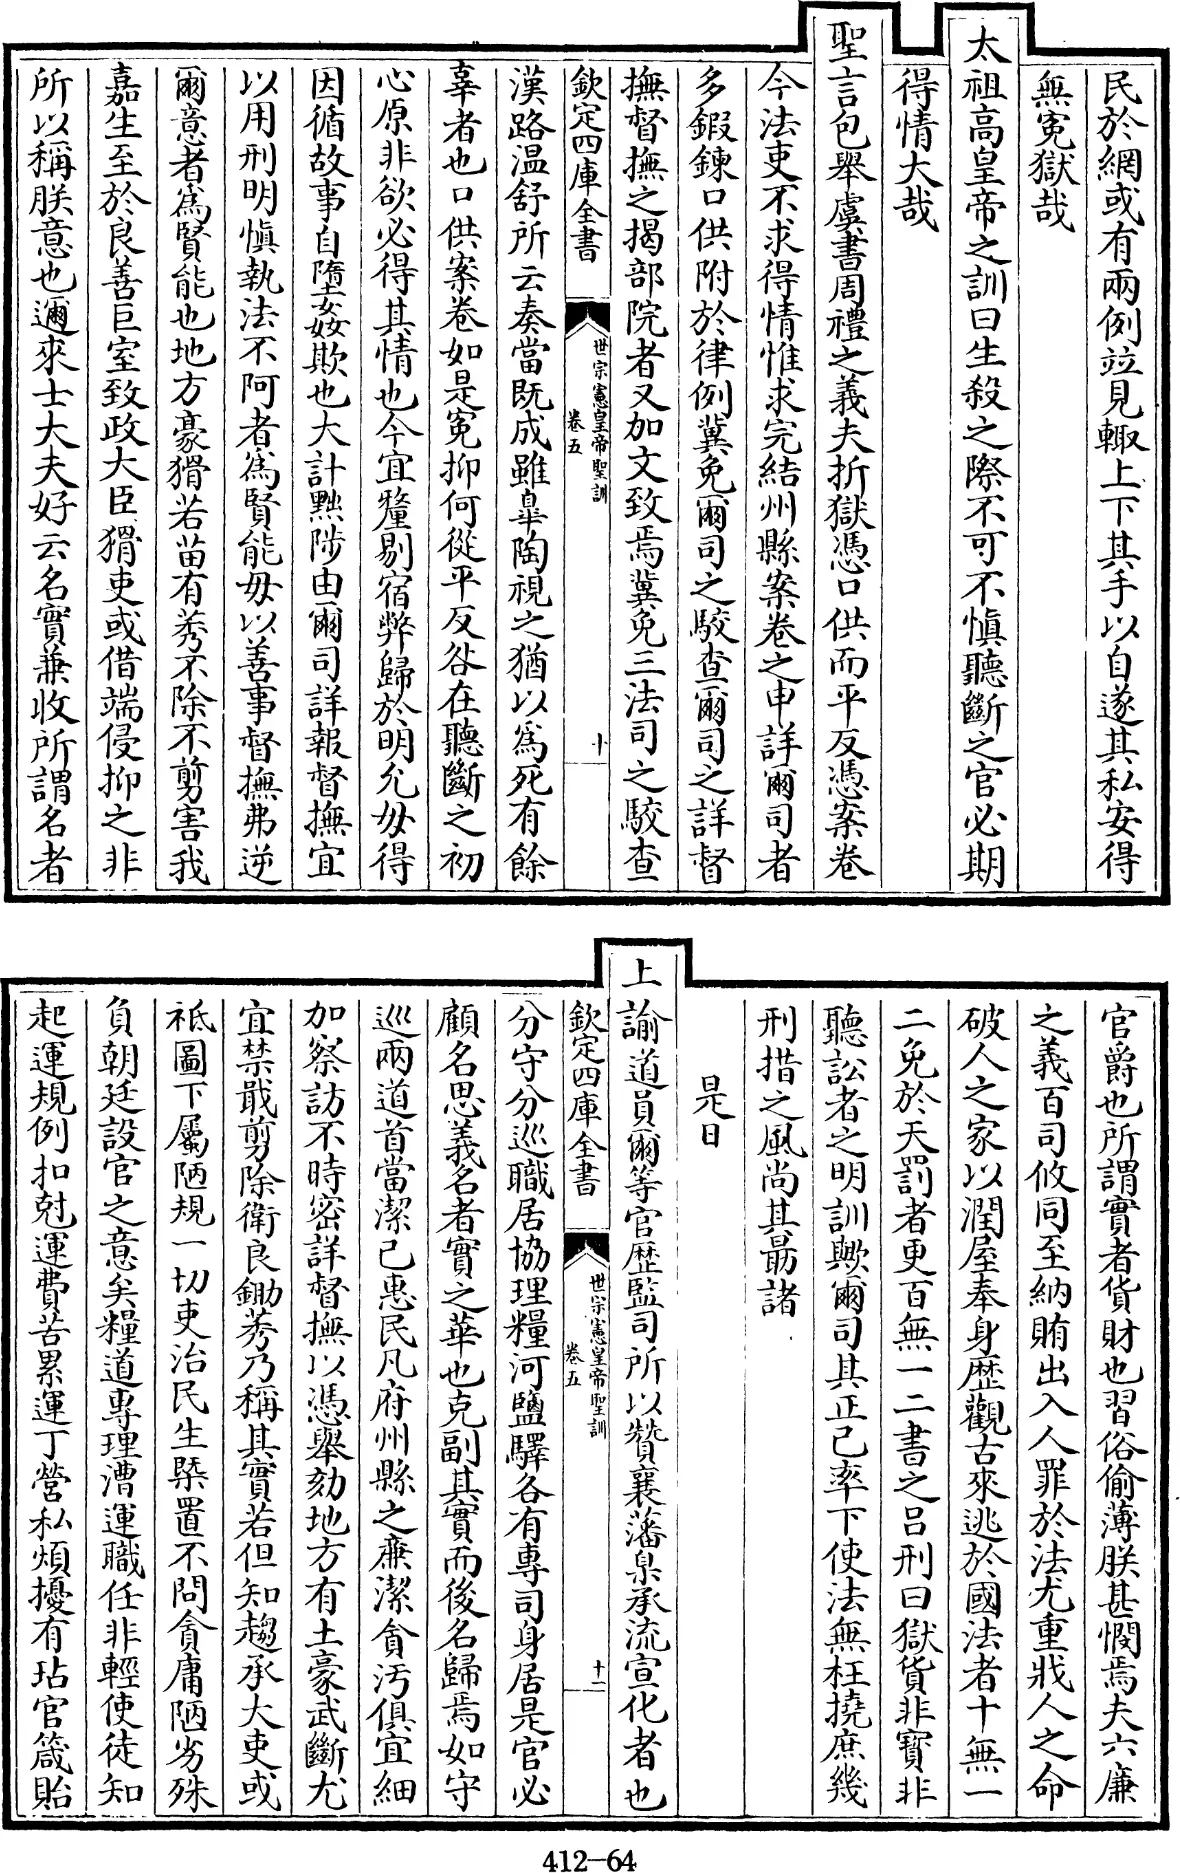 民於網或有兩例竝見輙上下其手以自遂其私安得
無寃獄哉
太祖高皇帝之訓曰生殺之際不可不慎聽斷之官必期
得情大哉
聖言包舉虞書周禮之義夫折獄憑口供而平反憑案卷
今法吏不求得情惟求完結州縣案卷之申詳爾司者
多鍜鍊口供附於律例冀免爾司之駮查爾司之詳督
撫督撫之揭部院者又加文致焉冀免三法司之駮查
欽定四庫全書
世宗憲皇帝聖訓
卷五
十
漢路温舒所云奏當既成雖臯陶視之猶以為死有餘
辜者也口供案卷如是寃抑何從平反咎在聽斷之初
心原非欲必得其情也今宜釐剔宿弊歸於明允毋得
因循故事自墮姦欺也大計黜陟由爾司詳報督撫宜
以用刑明慎執法不阿者為賢能毋以善事督撫弗逆
爾意者為賢能也地方豪猾若苗有莠不除不剪害我
嘉生至於良善巨室致政大臣猾吏或借端侵抑之非
所以稱朕意也邇來士大夫好云名實兼收所謂名者
官爵也所謂實者貨財也習俗偷薄朕甚憫焉夫六廉
之義百司攸同至納賄出入人罪於法尤重戕人之命
破人之家以潤屋奉身歴觀古來逃於國法者十無一
二免於天罰者更百無一二書之呂刑曰獄貨非寳非
聽訟者之明訓歟爾司其正己率下使法無枉撓庶幾
刑措之風尚其朂諸
是日
上諭道員爾等官歴監司所以贊襄藩臬承流宣化者也
欽定四庫全書
世宗憲皇帝聖訓
卷五
十一
分守分巡職居協理糧河鹽驛各有專司身居是官必
顧名思義名者實之華也克副其實而後名歸焉如守
巡兩道首當潔己惠民凡府州縣之亷潔貪汚俱宜細
加察訪不時密詳督撫以憑舉劾地方有土豪武斷尤
宜禁戢剪除衛良鋤莠乃稱其實若但知趨承大吏或
祗圖下屬陋規一切吏治民生槩置不問貪庸陋劣殊
負朝廷設官之意矣糧道專理漕運職任非輕使徒知
起運規例扣尅運費苦累運丁營私煩擾有玷官箴貽
412-64